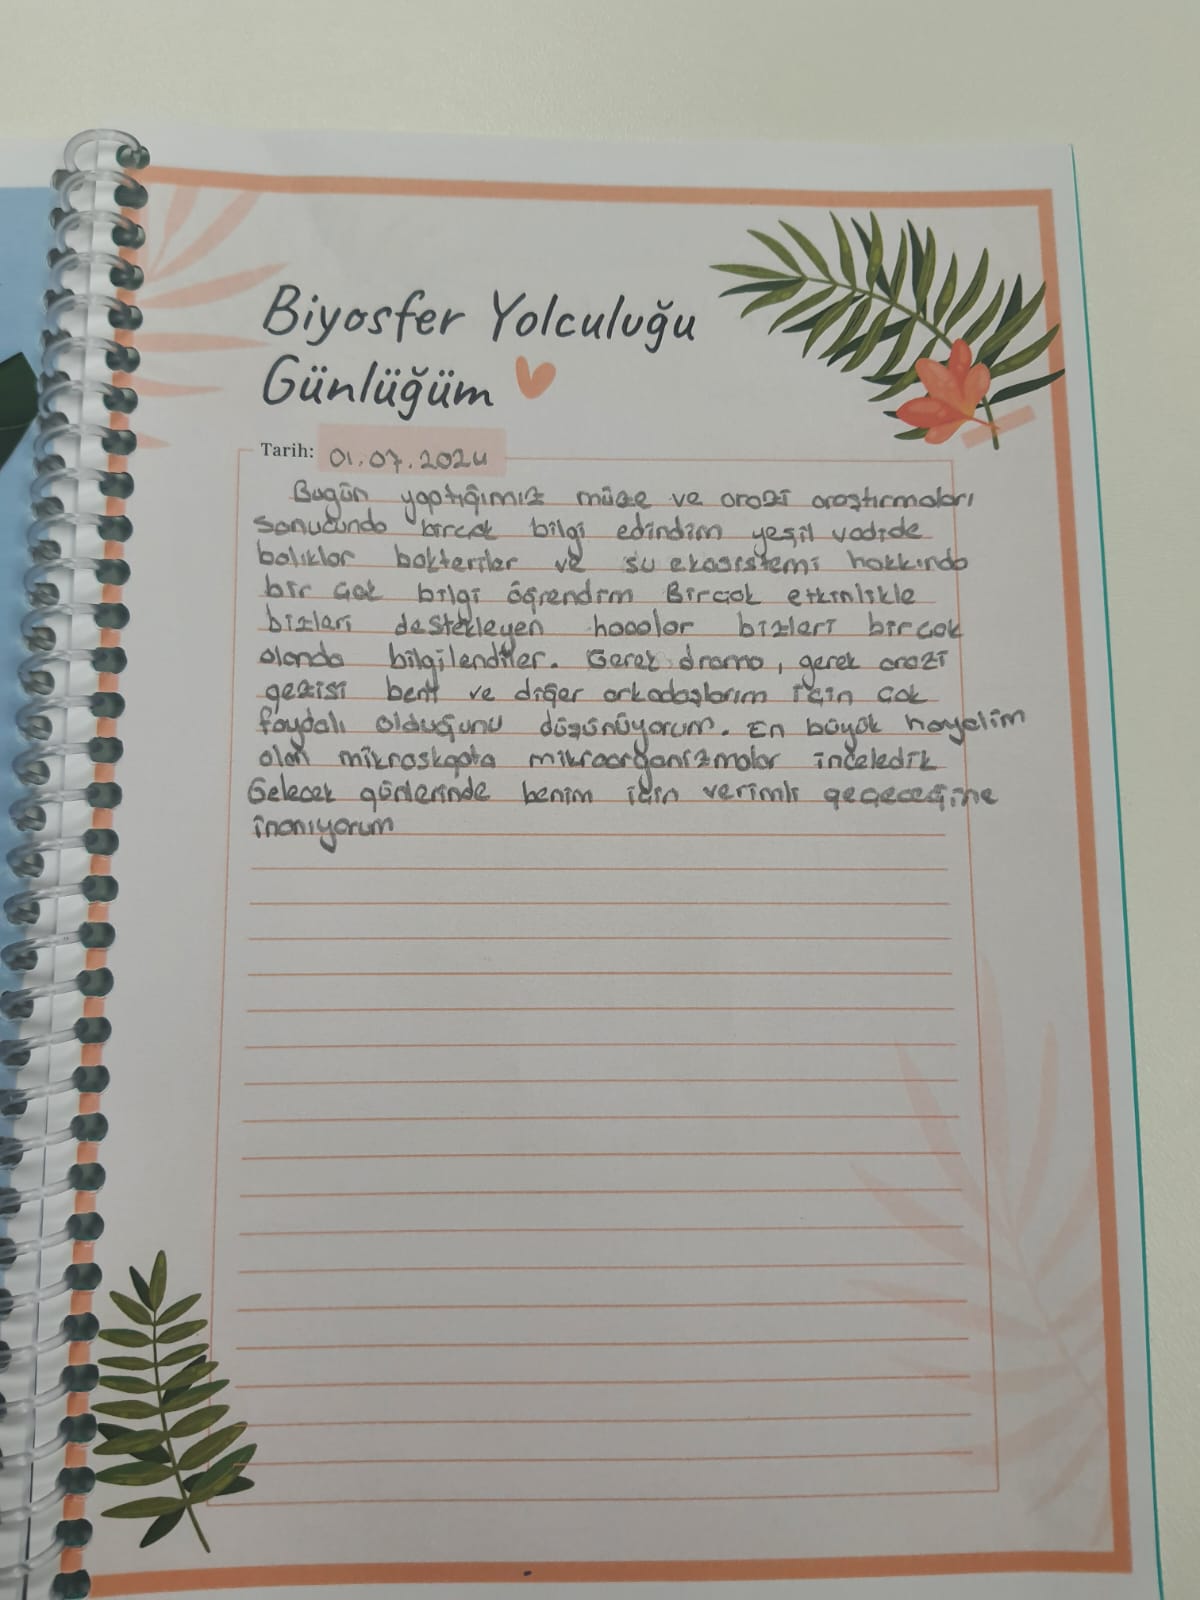 Biyosfer Yolculuğu
Günlüğüm
Tarih: 01.07.2024
Bugün yaptığımız müze ve arazi araştırmaları
sonucunda birçok bilgi edindim yeşil vadide
balıklar bakteriler ve su ekosistemi hakkında
bir çok bilgi öğrendim Birçok etkinlikle
bizleri destekleyen hocalar bizleri birçok
alanda bilgilendiler. Gerek drama, gerek arazi
gezisi beni ve diğer arkadaşlarım için çok
faydalı olduğunu düşünüyorum. En büyük hayalim
olan mikroskopta mikroorganizmalar inceledik
Gelecek günlerinde benim için verimli geçeceğine
inanıyorum